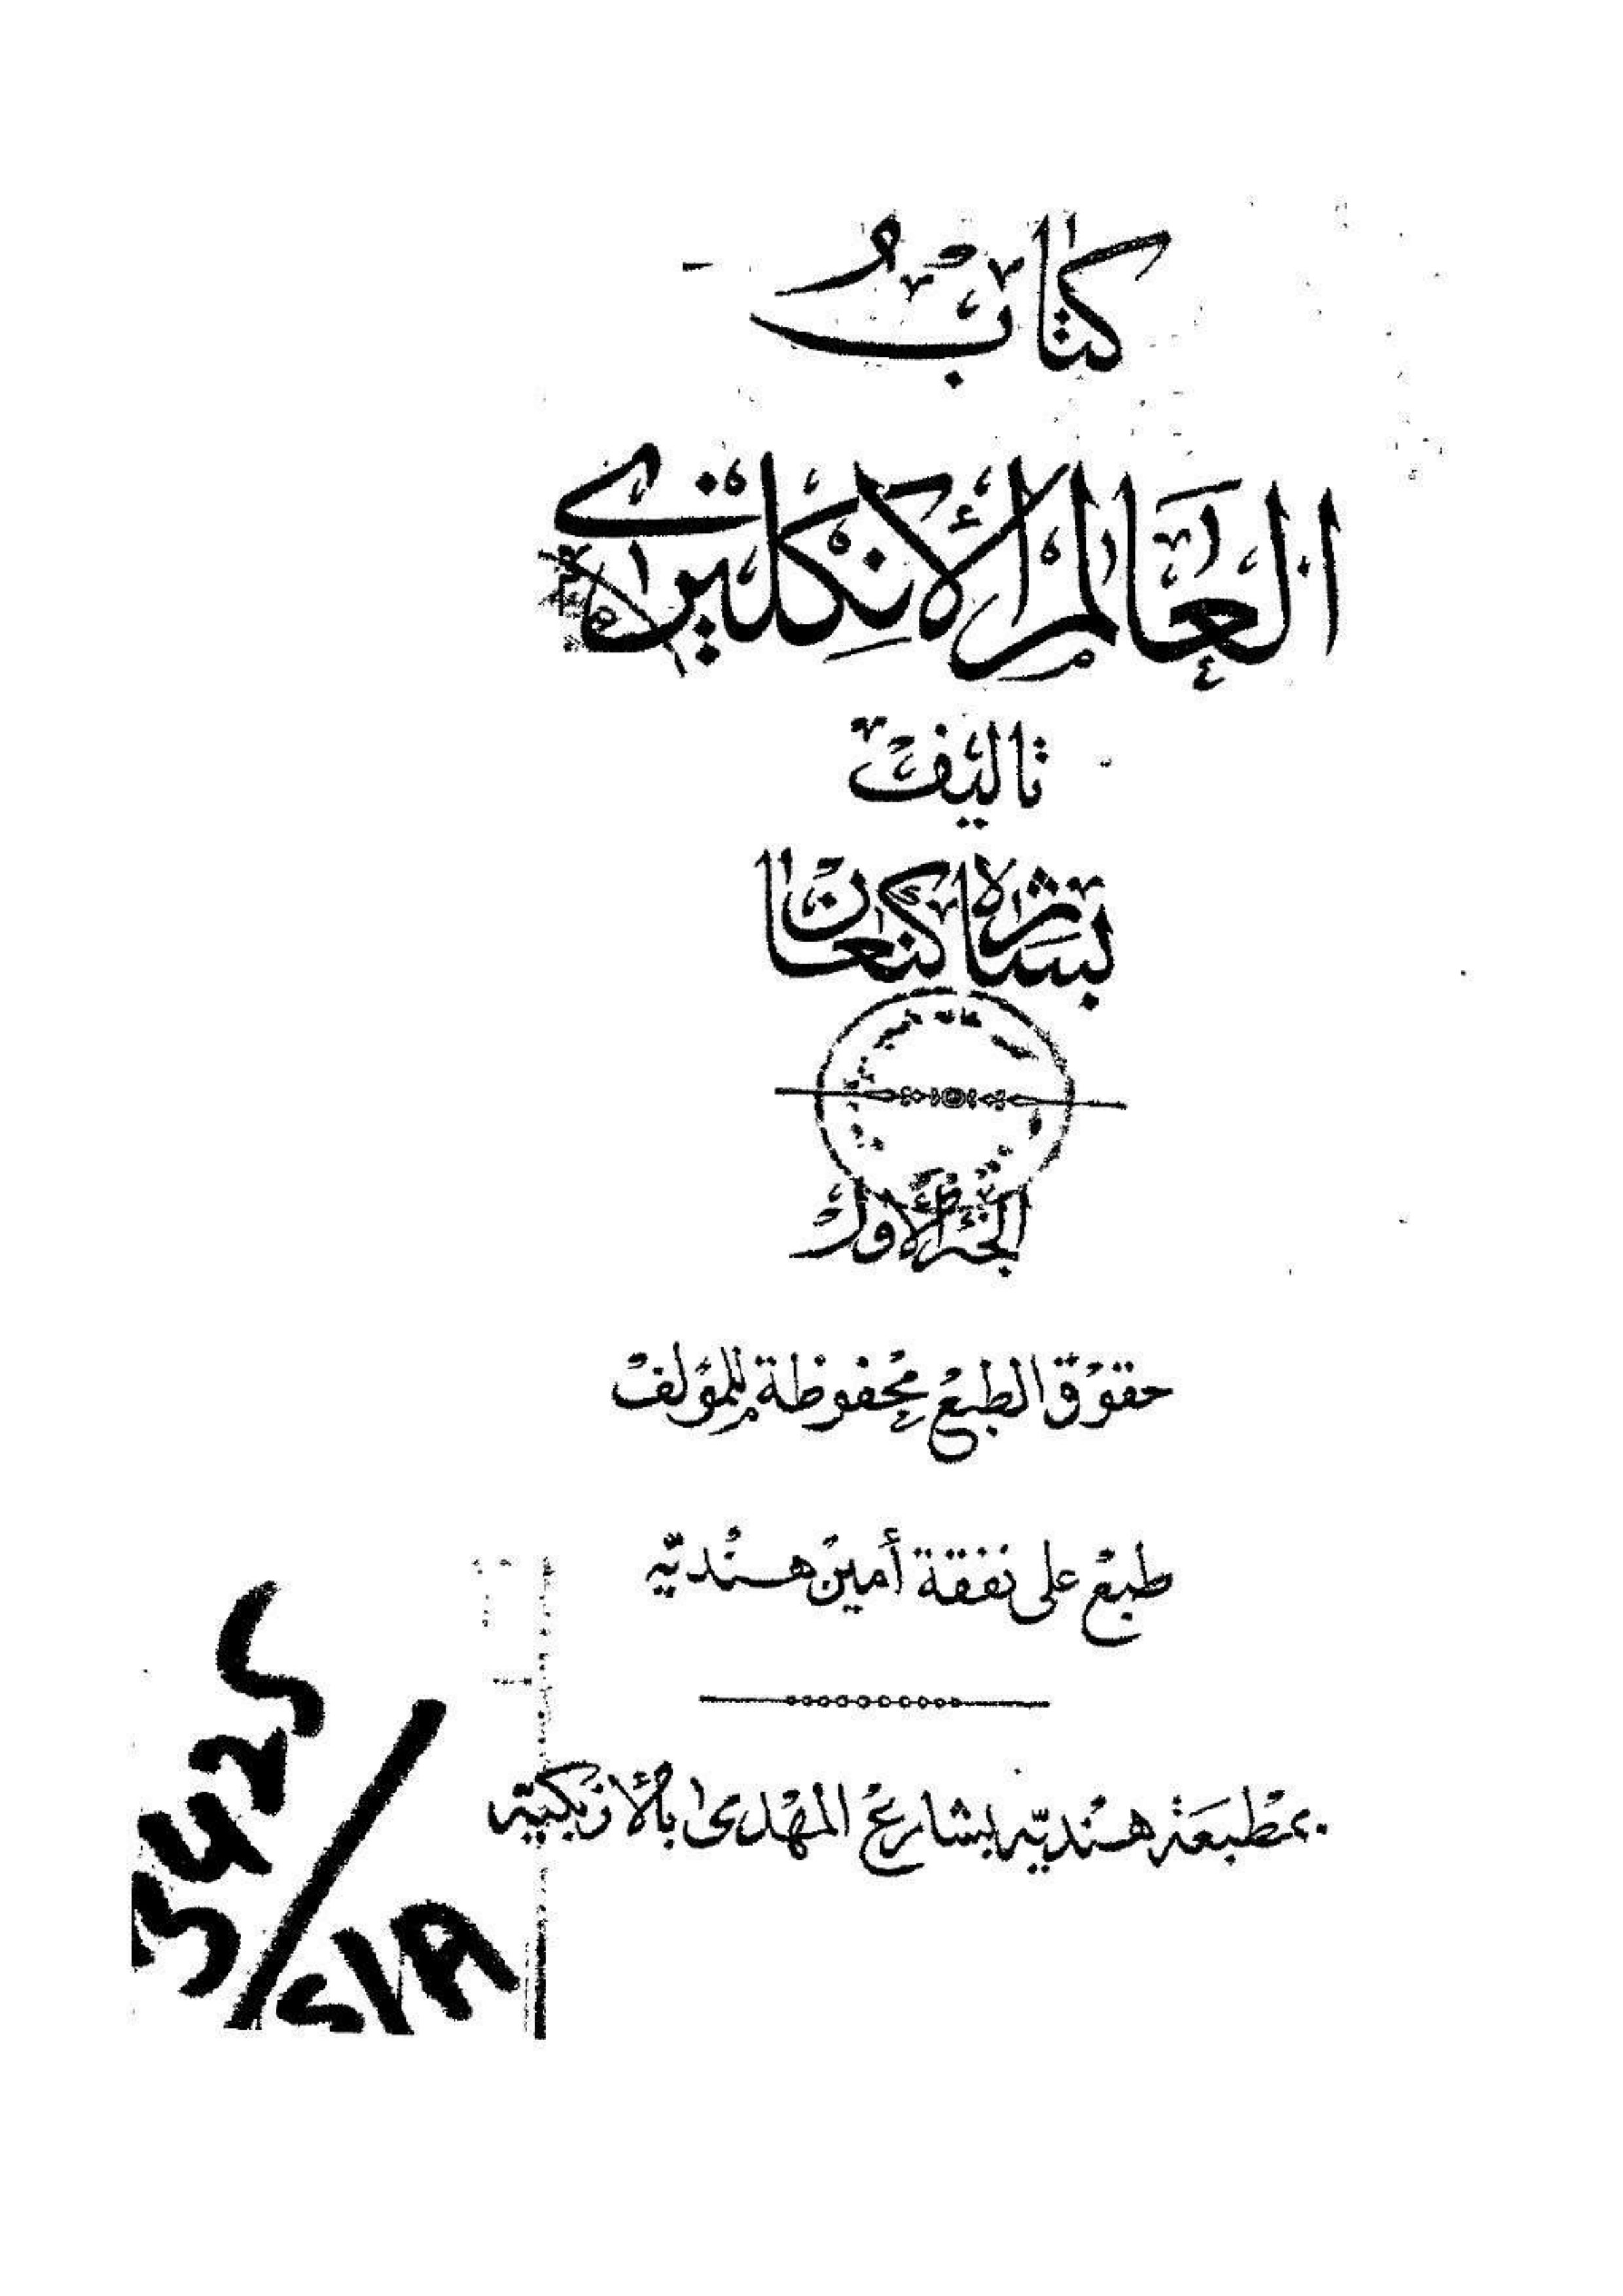 كتاب
العالم الانكليزي
تاليف
بشاره كنعان
الجزء الاول
حقوق الطبع محفوظة للمؤلف
طبع على نفقة أمين هنديه
بمطبعة هنديه بشارع المهدى بالأزبكيه